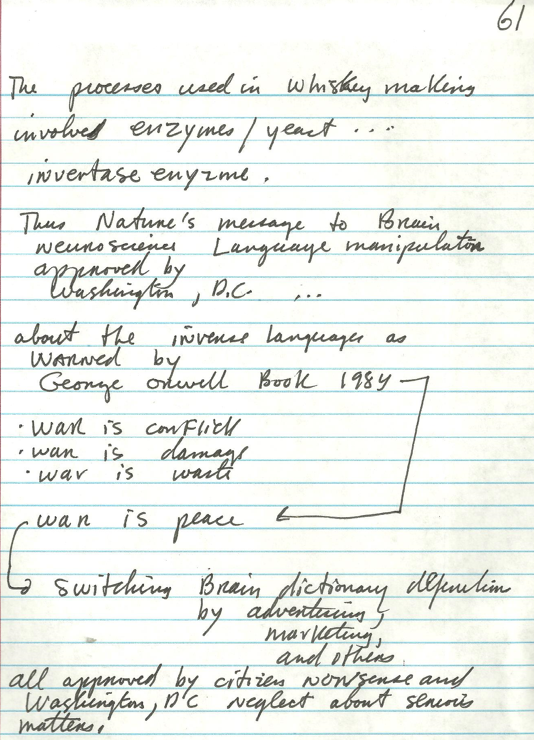 61
The processes used in whiskey making
involved enzymes / yeast ...
invertase enyzme.
Thus Nature's message to Brain
neuroscience Language manipulation
approved by
Washington, D.C. ...
about the inverse languages as
WARNED by
George Orwell Book 1984
• war is conflict
• war is damage
• war is waste
war is peace
switching Brain dictionary definition
by advertising,
marketing,
and others.
all approved by citizen nonsense and
Washington, DC neglect about serious
matters.